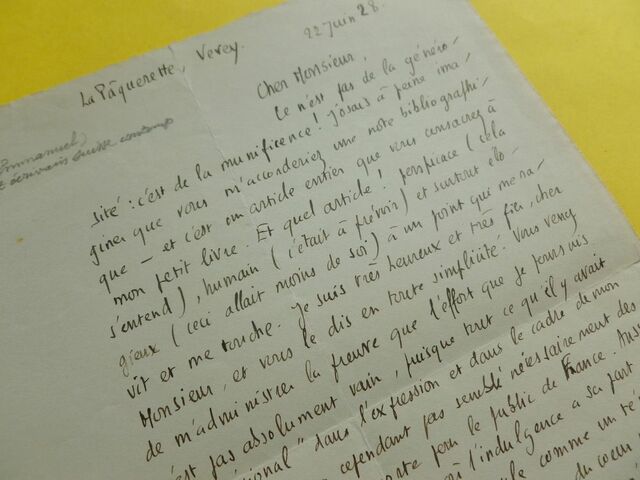 La Pâquerette, Vevey.
22 juin 28.
Emmanuel,
écrivain suisse contemp
Cher Monsieur,
Ce n'est pas de la généro-
sité : c'est de la munificence ! J'osais à peine ima-
giner que vous m'accorderiez une note bibliographi-
que — et c'est un article entier que vous consacrez à
mon petit livre. Et quel article ! perspicace (cela
s'entend), humain (c'était à prévoir) et surtout élo-
gieux (ceci allait moins de soi) à un point qui me ra-
vit et me touche. Je suis très heureux et très fier, cher
Monsieur, et vous le dis en toute simplicité. Vous venez
de m'administrer la preuve que l'effort que je poursuis
n'est pas absolument vain, puisque tout ce qu'il y avait
"dans l'expression et dans le cadre de mon
cependant pas semblé nécessairement des
pour le public de France. Aussi
l'indulgence a sa part
comme un
du cœur,